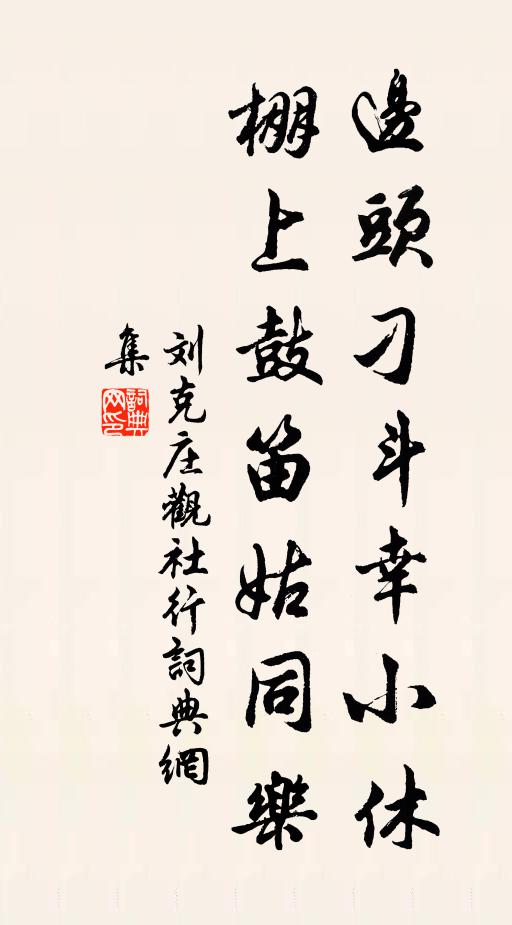 邊頭刁斗幸小休
棚上鼓笛姑同樂
刘克庄觀社行詞典網
集
詞典網印